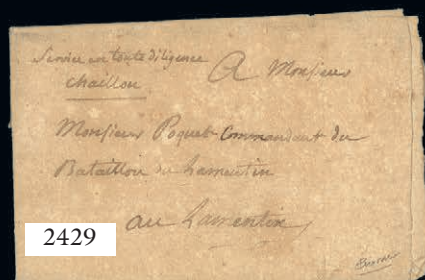 Service en toute diligence
Chaillou
A Monsieur
Monsieur Poquet Commandant du
Bataillon du Lamentin
au Lamentin
2429